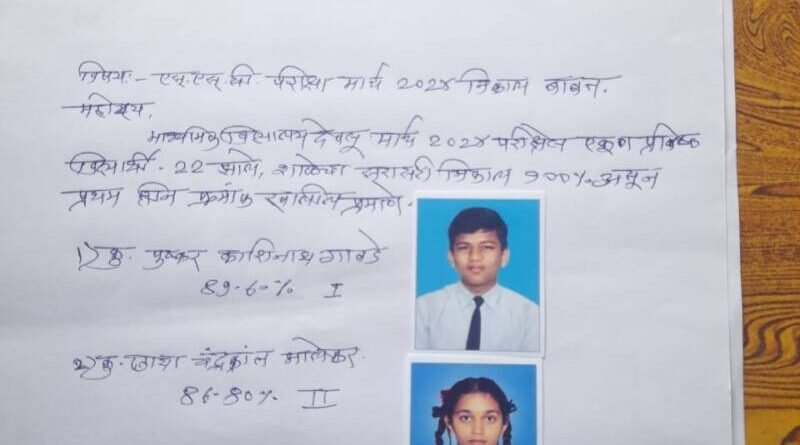 विषय:- एस.एस.सी. परीक्षा मार्च 2024 निकाल बाबत.
महोदय,
माध्यमिक विद्यालय देवसू मार्च 2024 परीक्षेस एकूण प्रविष्ठ
विद्यार्थी - 22 झाले, शाळेचा सरासरी निकाल 100% असून
प्रथम तिन क्रमांक खालील प्रमाणे.
1) कु. पुष्कर काशिनाथ गावडे
89.60% I
2) कु. चंद्रकांत
86.80% II